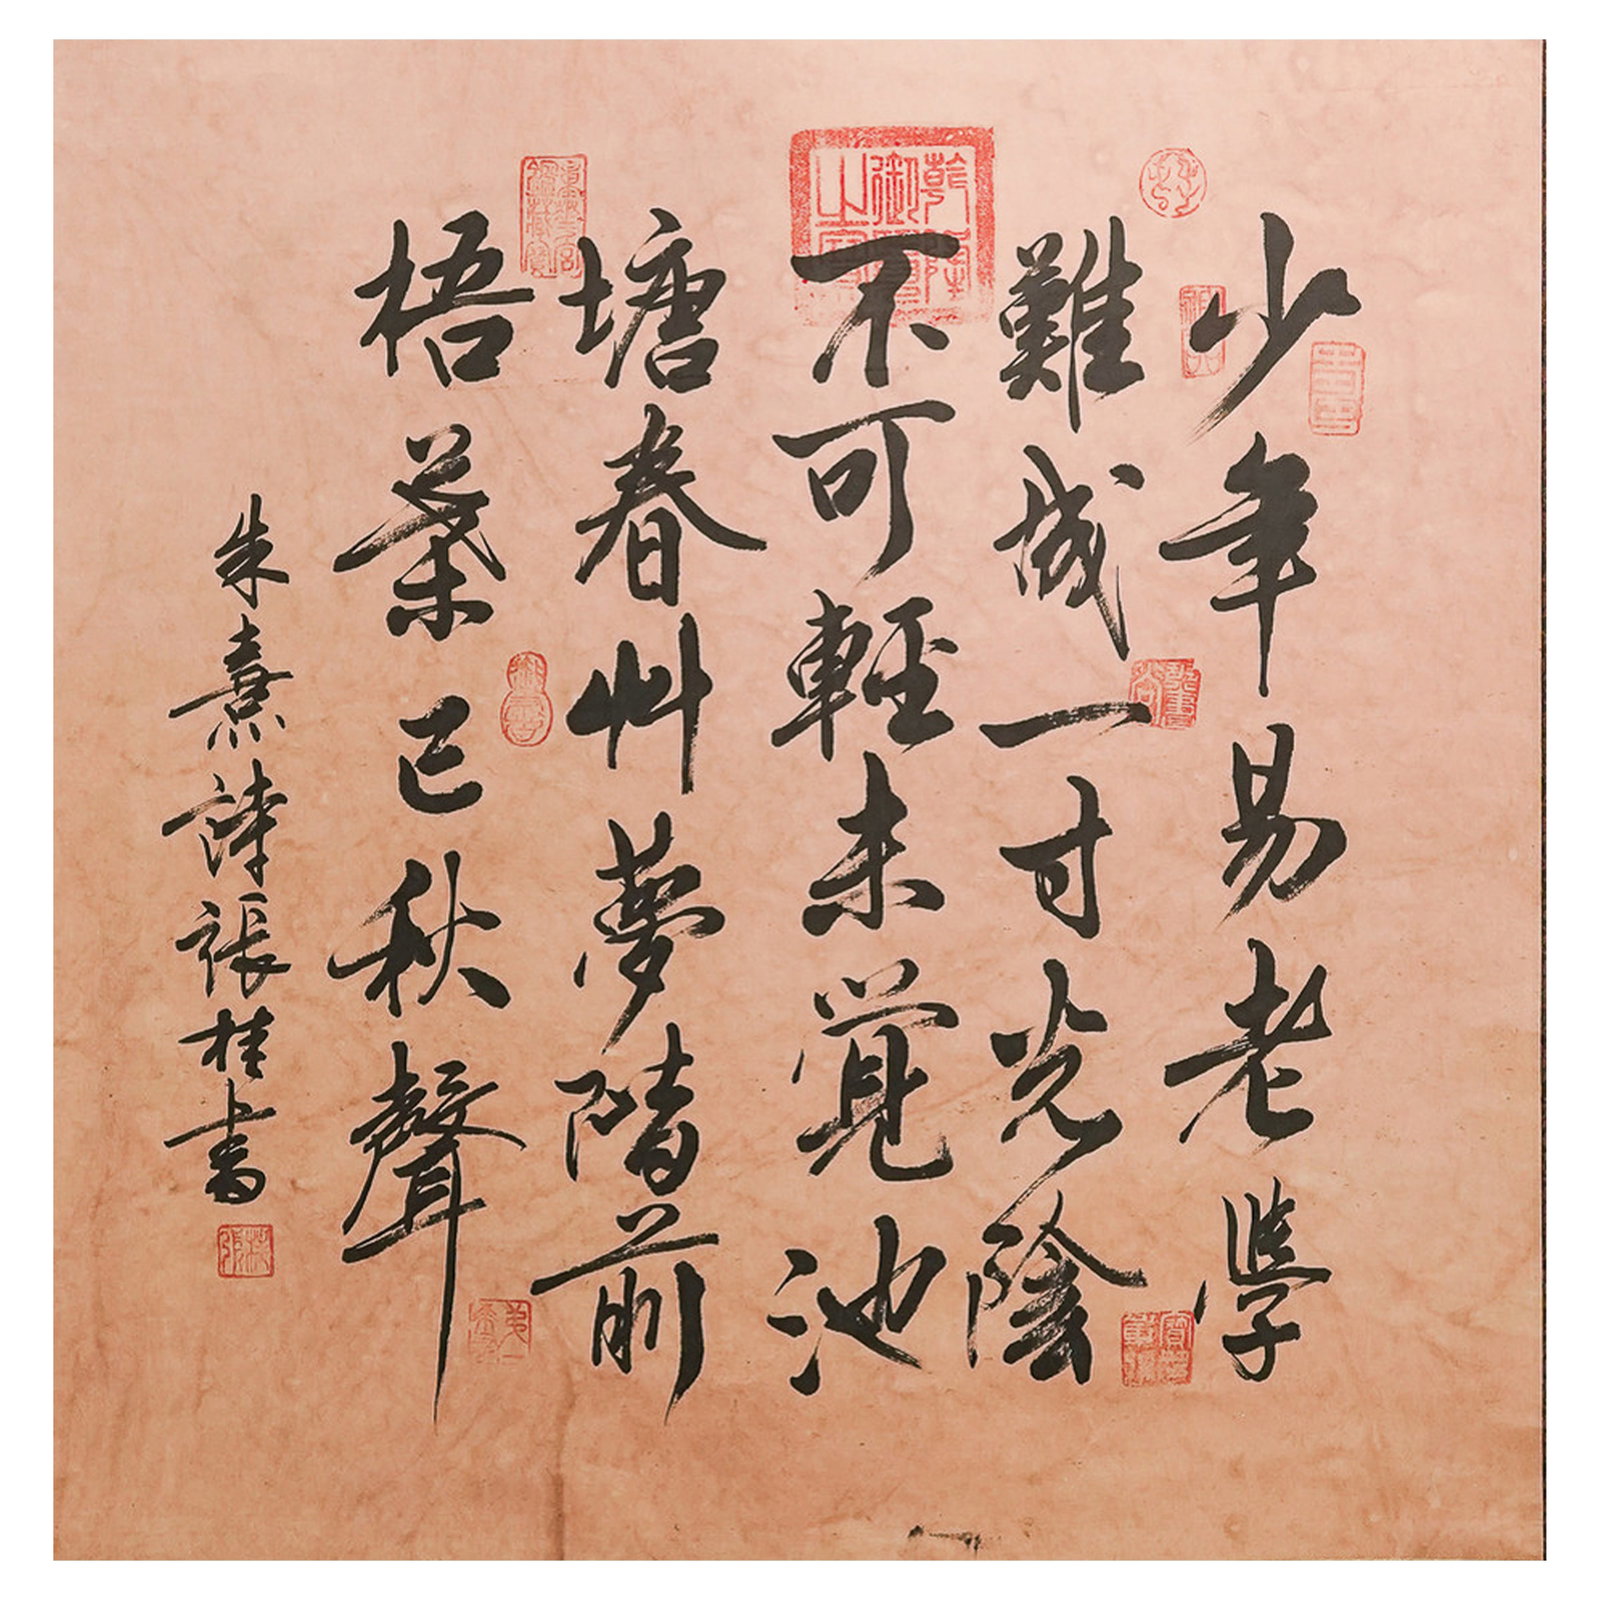 少年易老學
難成一寸光陰
不可輕未覺池
塘春艸夢階前
梧葉已秋聲
朱熹詩張桂書